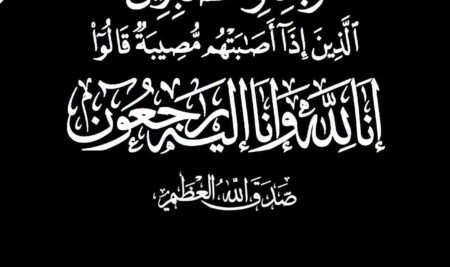 الَّذِينَ إِذَآ أَصَٰبَتْهُم مُّصِيبَةٌ قَالُوٓا۟
إنا لله وإنا إليه راجعون
صدق الله العظيم